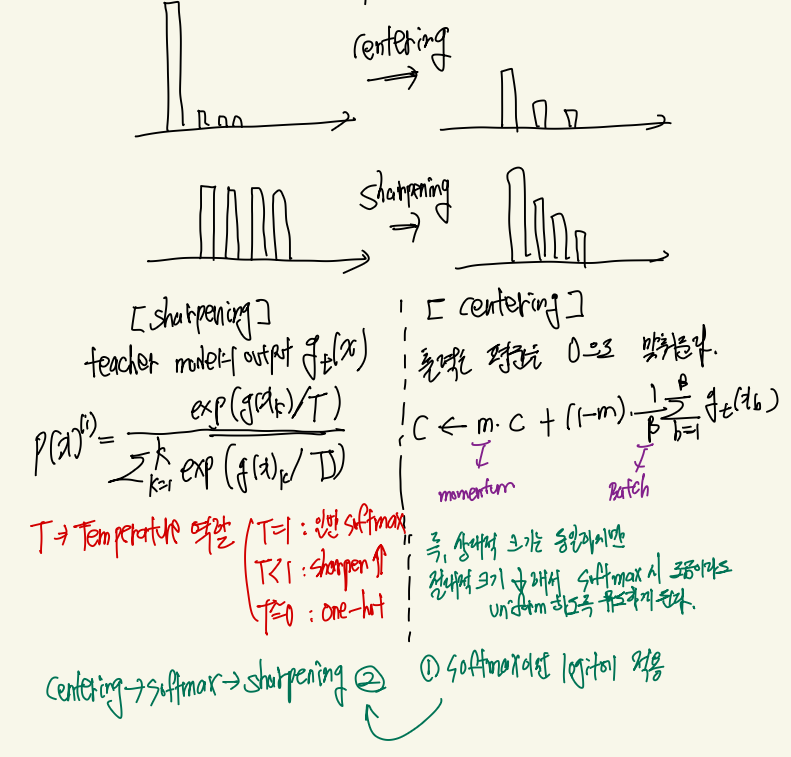 centering
sharpening
[sharpening]
teacher model의 output g_t(x)
P(x)^(i) = exp(g(x)_k)/T) / Σ_{k=1}^{K} exp(g(x)_k/T))
T ⇒ Temperature 역할
T=1 : 일반 softmax
T<1 : sharpen ↑
T≈0 : one-hot
[centering]
출력을 평균을 0으로 맞춰준다.
C ← m·C + (1-m)·1/B Σ_{b=1}^{B} g_t(x_b)
momentum
Batch
즉, 상대적 크기는 동일하지만
절대적 크기 ↓ 해서 softmax 시 조금이라도
uniform 하도록 유도하게 된다.
① softmax 이전 logit에 적용
centering→softmax→sharpening ②